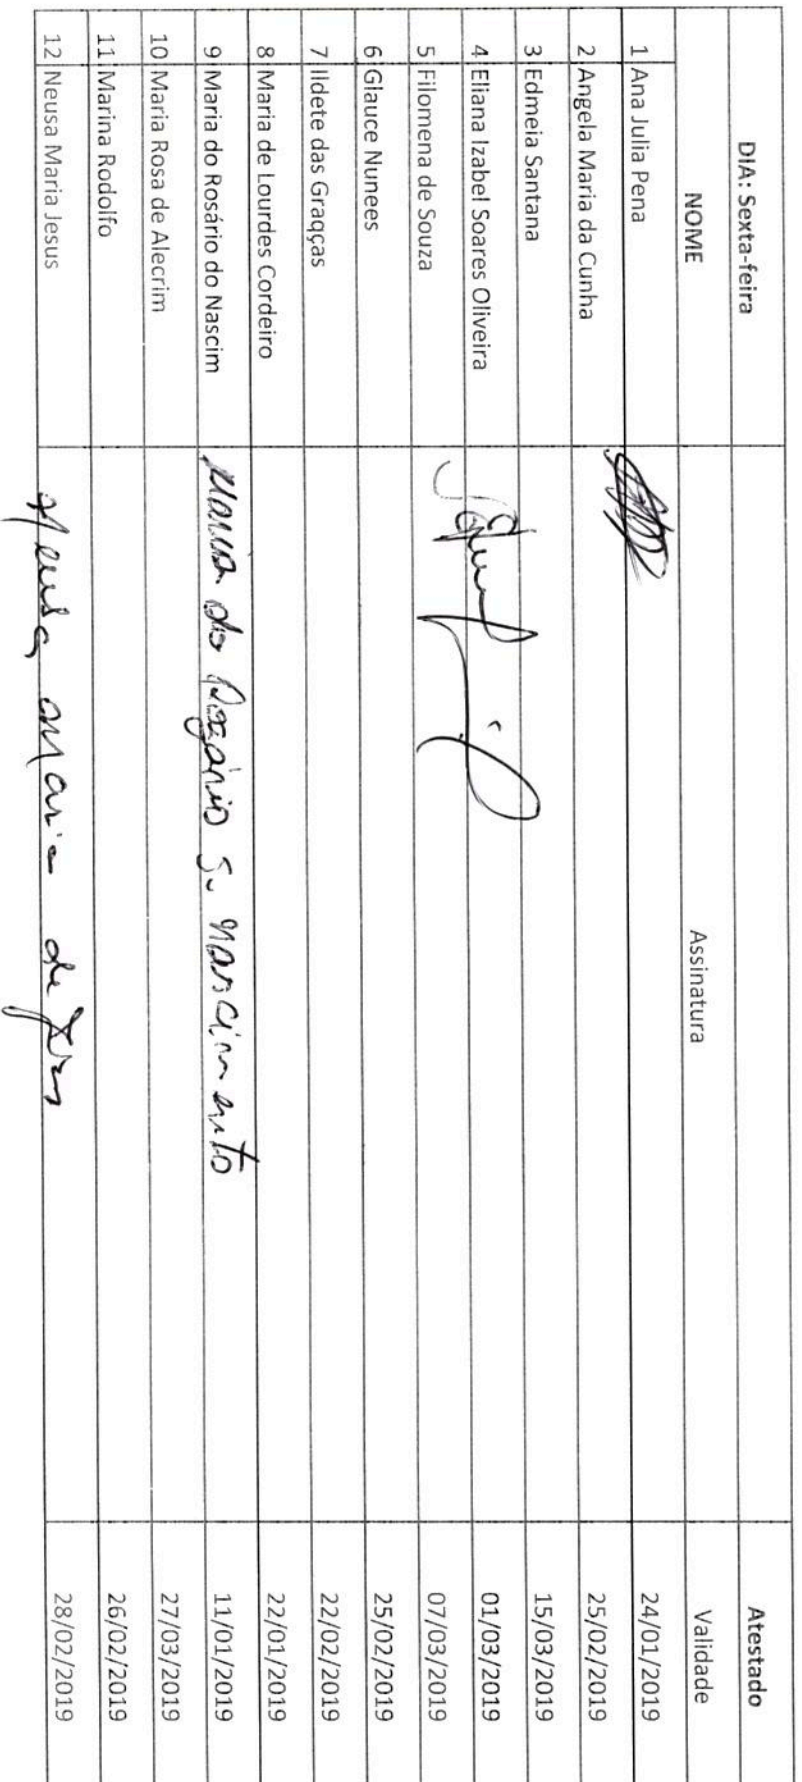 DIA: Sexta-feira Atestado
NOME Assinatura Validade
1 Ana Julia Pena 24/01/2019
2 Angela Maria da Cunha 25/02/2019
3 Edmeia Santana 15/03/2019
4 Eliana Izabel Soares Oliveira 01/03/2019
5 Filomena de Souza 07/03/2019
6 Glauce Nunees 25/02/2019
7 Ildete das Graqças 22/02/2019
8 Maria de Lourdes Cordeiro 22/01/2019
9 Maria do Rosário do Nascim Maria do Rozário S. Nascimento 11/01/2019
10 Maria Rosa de Alecrim 27/03/2019
11 Marina Rodolfo 26/02/2019
12 Neusa Maria Jesus Neusa Maria de Jesus 28/02/2019